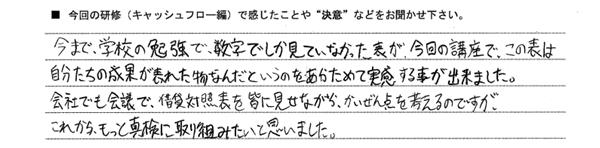 ■ 今回の研修（キャッシュフロー編）で感じたことや“決意”などをお聞かせ下さい。
今まで、学校の勉強で、数字でしか見ていなかった表が、今回の講座で、この表は
自分たちの成果が表れた物なんだというのをあらためて実感する事が出来ました。
会社でも会議で、貸借対照表を皆に見せながら、かいぜん点を考えるのですが、
これから、もっと真検に取り組みたいと思いました。